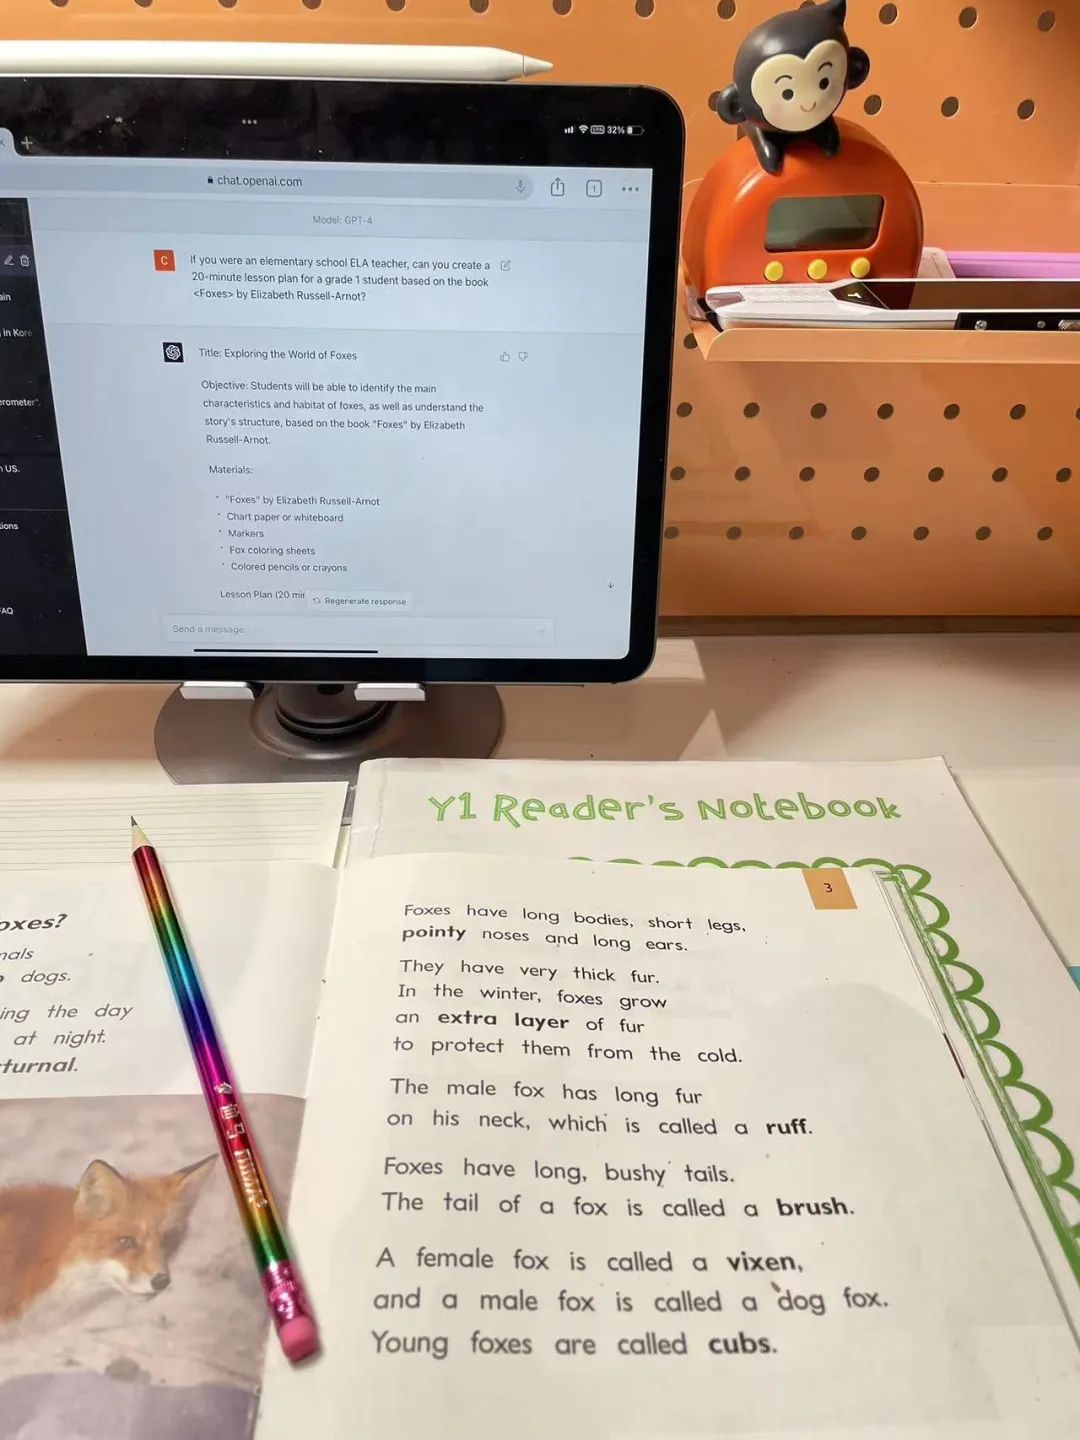 32%
chat.openai.com
1
Model: GPT-4
C
If you were an elementary school ELA teacher, can you create a
20-minute lesson plan for a grade 1 student based on the book
<Foxes> by Elizabeth Russell-Arnot?
Title: Exploring the World of Foxes
Objective: Students will be able to identify the main
characteristics and habitat of foxes, as well as understand the
story's structure, based on the book "Foxes" by Elizabeth
Russell-Arnot.
Materials:
"Foxes" by Elizabeth Russell-Arnot
Chart paper or whiteboard
Markers
Fox coloring sheets
Colored pencils or crayons
Lesson Plan (20 mi
Regenerate response
Send a message...
in Kore
erometer".
US.
tions
FAQ
Y1 Reader's Notebook
oxes?
mals
dogs.
ing the day
at night.
turnal.
3
Foxes have long bodies, short legs,
pointy noses and long ears.
They have very thick fur.
In the winter, foxes grow
an extra layer of fur
to protect them from the cold.
The male fox has long fur
on his neck, which is called a ruff.
Foxes have long, bushy tails.
The tail of a fox is called a brush.
A female fox is called a vixen,
and a male fox is called a dog fox.
Young foxes are called cubs.